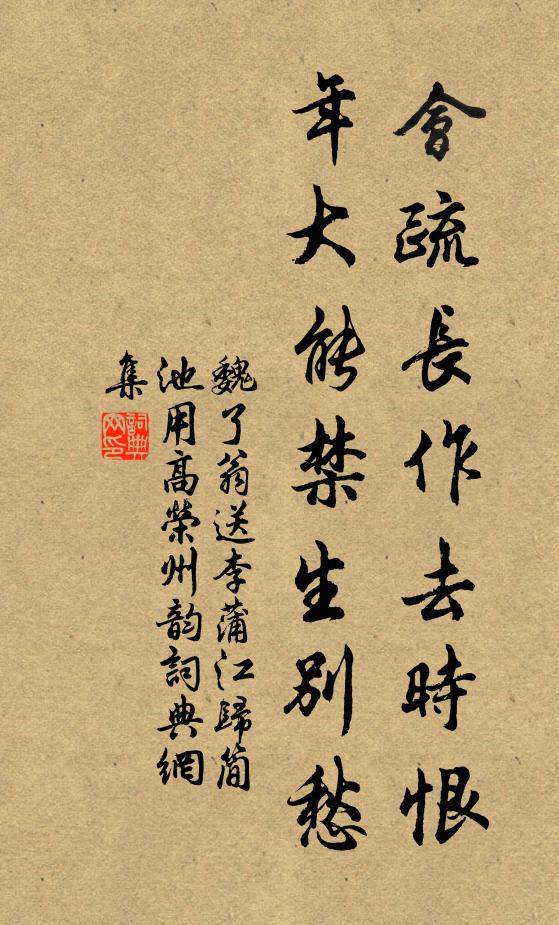 會疏長作去時恨
年大能禁生別愁
魏了翁送李蒲江歸簡
池用高榮州韵詞典網
集
詞典網印